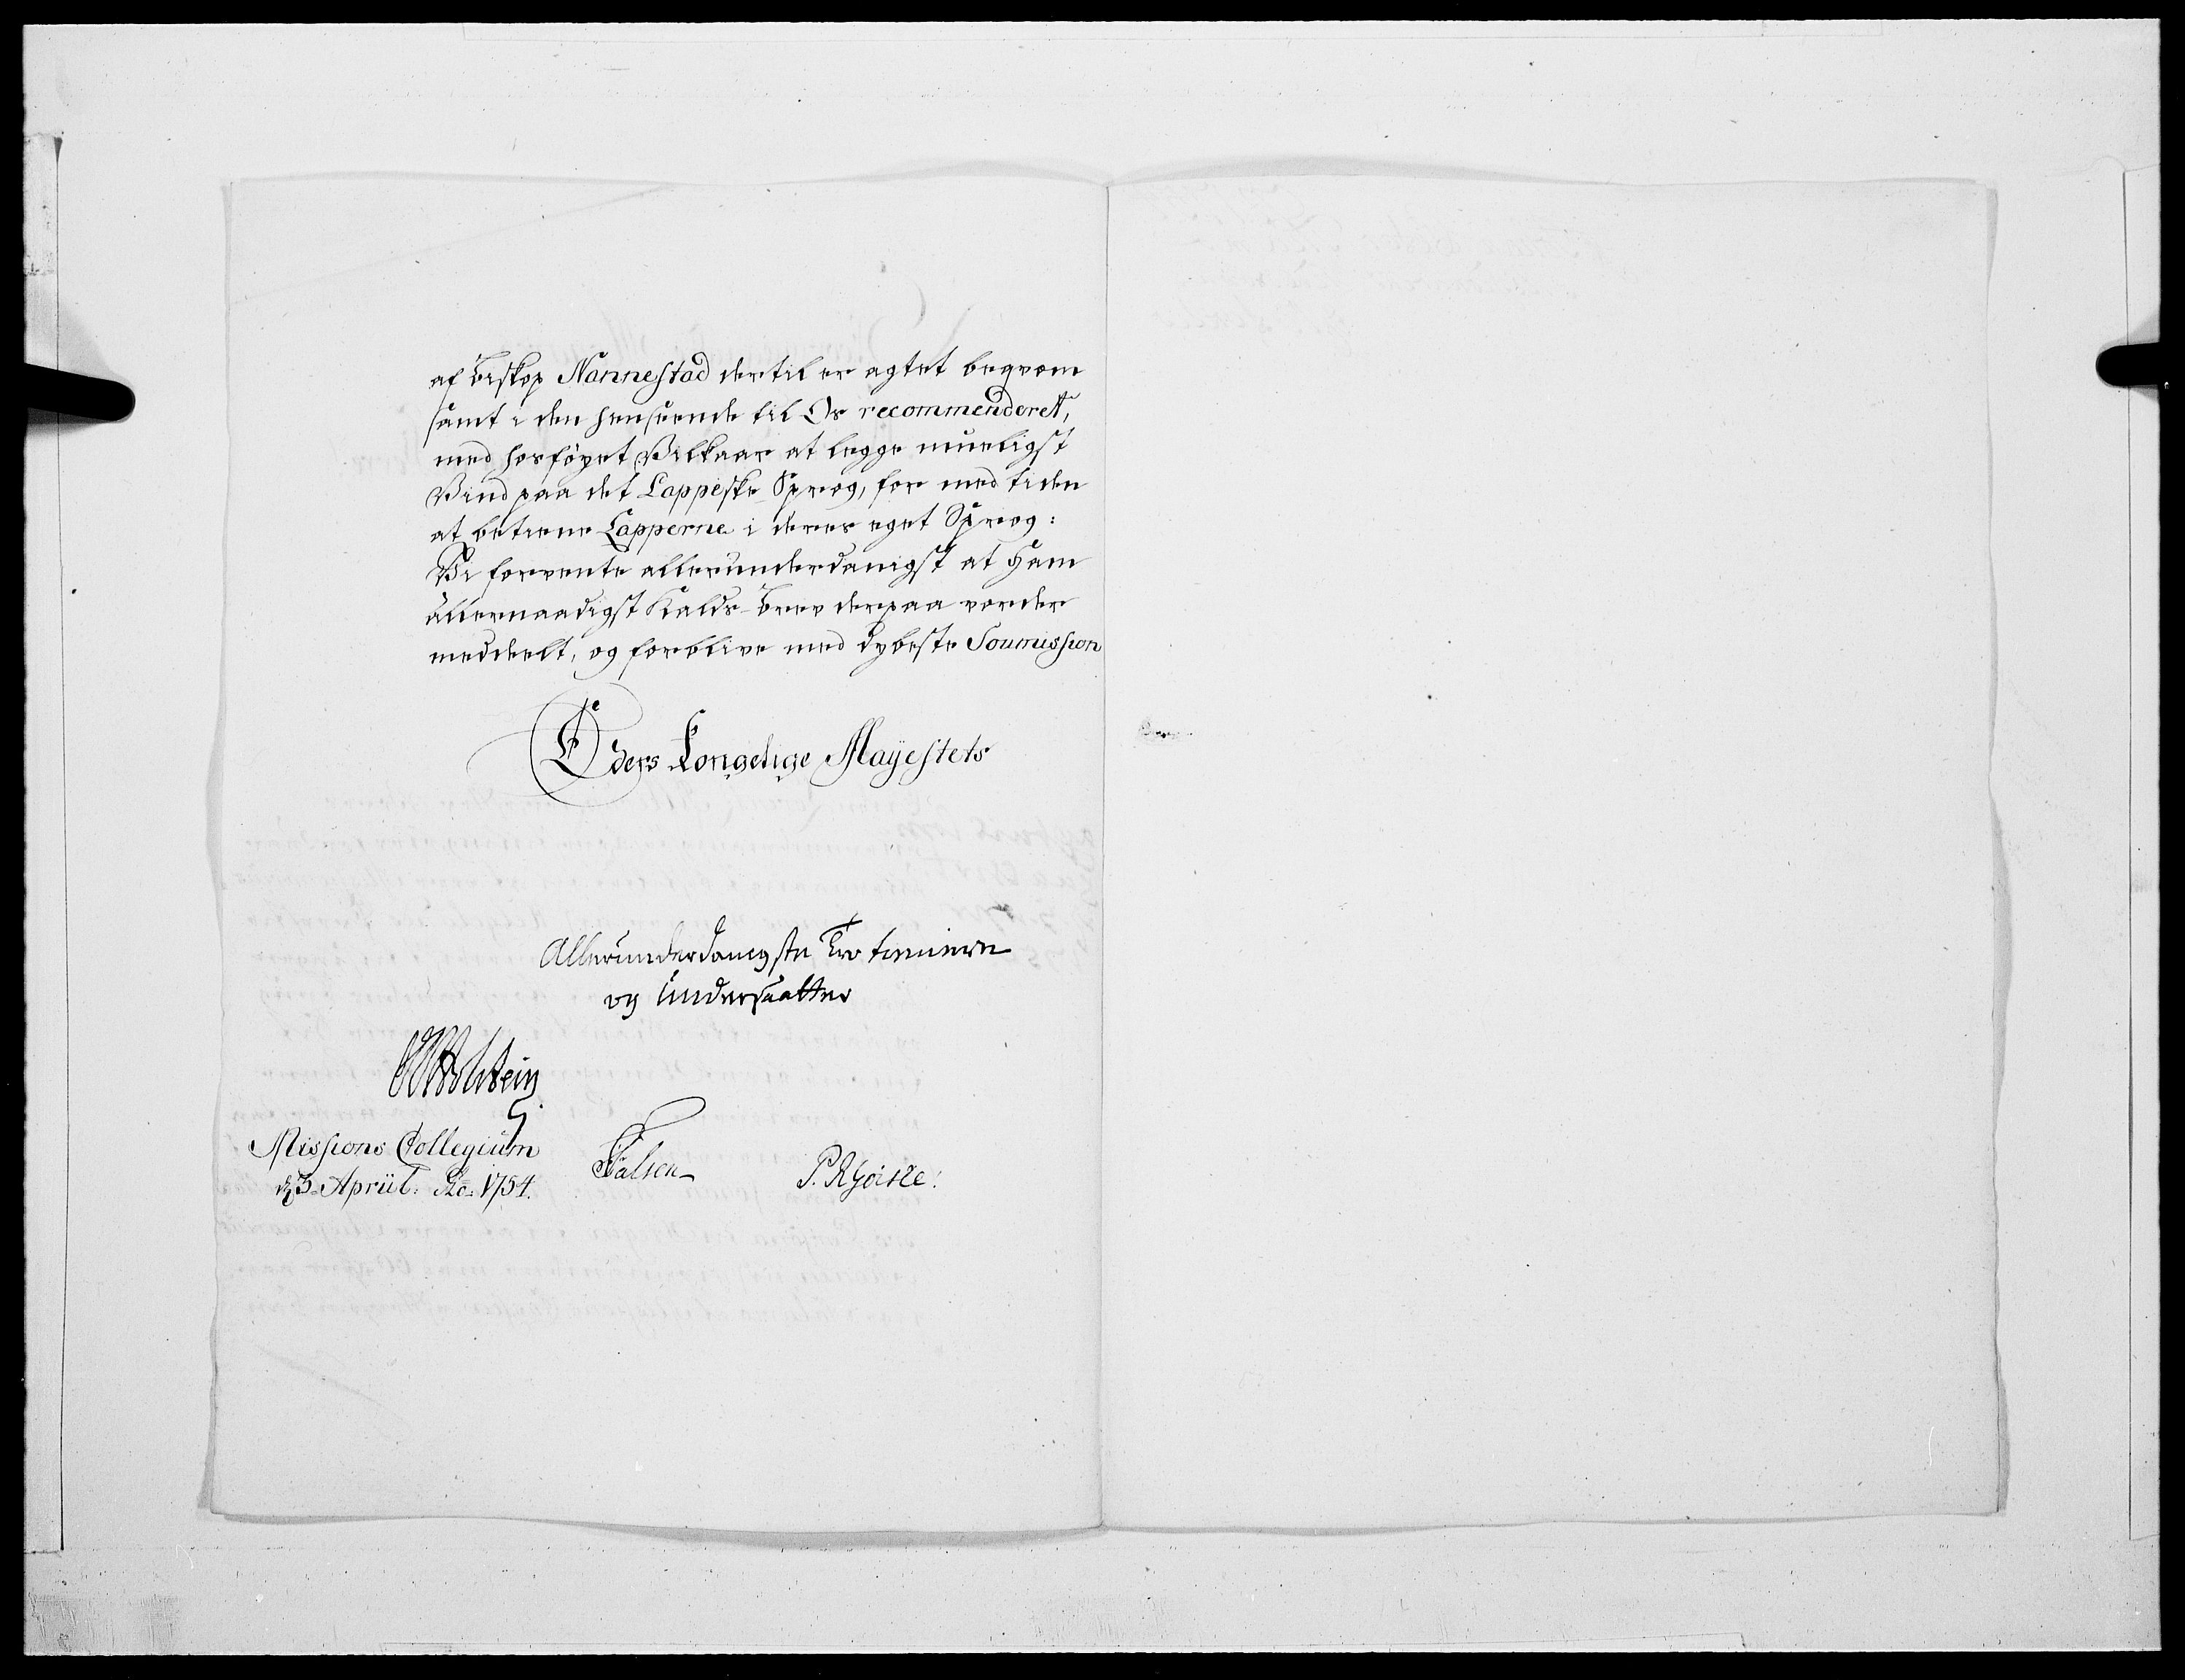 af Biskop Nannestad dertil er agtet beqvem
samt i den henseende til Os recommenderet,
med hosföyet Vilkaar at legge mueligst
Vind paa det Lappeske Sprog, for med tiden
at betiene Lapperne i deres eget Sprog:
Vi forvente allerunderdanigst at Ham
allernaadigst Kalds-Brev derpaa vorder
meddeelt, og forblive med dybeste Soumission
Eders Kongelige Mayestets
Allerunderdanigste Troe tienere
og Undersaatter
Holstein
Missions Collegium
d 5 Apriil: Ao: 1754.